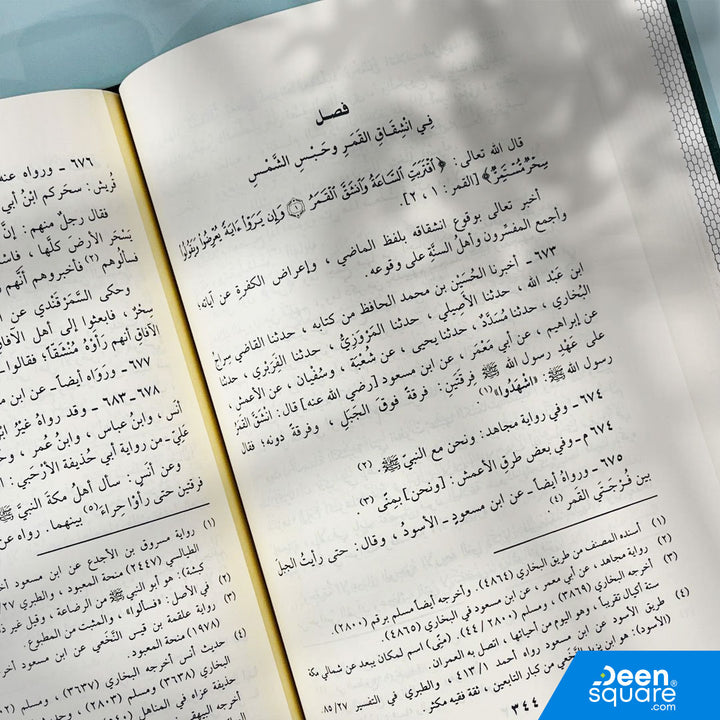 فصل
فِي انْشِقَاقِ القَمَرِ وحَبْسِ الشَّمْسِ
قال الله تعالى: ﴿ٱقْتَرَبَتِ ٱلسَّاعَةُ وَٱنشَقَّ ٱلْقَمَرُ ۝١ وَإِن يَرَوْا۟ ءَايَةً يُعْرِضُوا۟ وَيَقُولُوا۟
سِحْرٌ مُّسْتَمِرٌّ﴾ [القمر: ١ ، ٢].
أخبر تعالى بوقوع انشقاقه بلفظ الماضي ، وإعراض الكفرة عن آياته؛
وأجمع المفسّرون وأهلُ السنَّة على وقوعه.
٦٧٣ - أخبرنا الحُسَيْن بن محمد الحافظ من كتابه ، حدثنا القاضي سِراجُ
ابن عَبْد الله ، حدثنا الأَصِيلي ، حدثنا المَرْوَزِيُّ ، حدثنا الفَرَبْرِي ، حدثنا
البُخَاري ، حدثنا مُسَدَّدٌ ، حدثنا يحيى ، عن شُعْبَةَ ، وسُفْيان ، عن الأعمش ،
عن إبراهيم ، عن أبي مَعْمَر ، عن ابن مسعود [رضي الله عنه] قال: انْشَقَّ القمَرُ
على عَهْدِ رسول الله ﷺ فِرقتَين: فرقةً فوقَ الجَبَلِ ، وفرقةً دونه؛ فقال
رسول الله ﷺ: «اشْهَدُوا»(١)
٦٧٤ - وفي رواية مجاهد: ونحن مع النبيّ ﷺ. (٢)
٦٧٤ م - وفي بعض طرق الأعمش: [ونحن] بمِنًى (٣)
٦٧٥ - ورواهُ أيضاً - عن ابن مسعودٍ - الأسودُ ، وقال: حتى رأيتُ الجبلَ
بين فُرْجَتَي القمر (٤).
(١) أسنده المصنف من طريق البخاري (٤٨٦٤) ، وأخرجه أيضاً مسلم برقم (٢٨٠٠).
(٢) رواية مجاهد ، عن أبي معمر ، عن ابن مسعود في البخاري (٤٨٦٥)
(٣) أخرجه البخاري (٣٨٦٩) ، ومسلم (٤٤/٢٨٠٠). (مِنًى) اسم لمكان يبعد عن شمالي مكة
ستة أكيال تقريباً ، وهو اليوم من أحيائها ، اتصل به العمران.
(٤) طريق الأسود عن ابن مسعود رواه أحمد ٤١٣/١ ، والطبري في التفسير ٨٥/٢٧.
(الأسود): هو ابن يزيد النَّخَعي من كبار التابعين ، ثقة فقيه مكثر.
٣٤٤
٦٧٦ - ورواه عنه
قُريش: سحَركم ابنُ أبي
فقال رجلٌ منهم: إنَّ
يَسْحَر الأرضَ كلَّها ،
فسألوهم (٢) فأخبروهم أنَّهم
وحكى السَّمَرْقَنْدي عن
سِحْرٌ ، فابعثوا إلى أهل الآفاق
الآفاق أنهم رَأَوْهُ مُنْشَقّاً؛ فقالوا
٦٧٧ - وروَاه أيضاً - عن ابن
٦٧٨ - ٦٨٣ - وقد رواهُ غَيْرُ
أنَس ، وابنُ عباس ، وابنُ عُمر ،
عليّ - من رواية أبي حُذيفة الأرْحَبي
وعن أنَس: سأل أهلُ مكةَ النبيَّ ﷺ
فرقتين حتى رأَوْا حِراءً (٥) بينهما. رواه عن
(١) رواية مسروق بن الأجدع عن ابن مسعود
الطيالسي (٢٤٤٧) منحة المعبود ، والطبري
كبشة): هو أبو النبي ﷺ من الرضاعة ، وقيل غير
(٢) في الأصل: «فسألوا» ، والمثبت من المطبوع.
(٣) رواية علقمة بن قيس النَّخَعي عن ابن مسعود
(١٩٧٨) منحة المعبود.
(٤) حديث أنس أخرجه البخاري (٣٦٣٧) ،
البخاري (٣٦٣٨) ، ومسلم (٢٨٠٣) ،
حذيفة عزاه في المناهل
أخرجه البيهقي
Deen
square®
.com